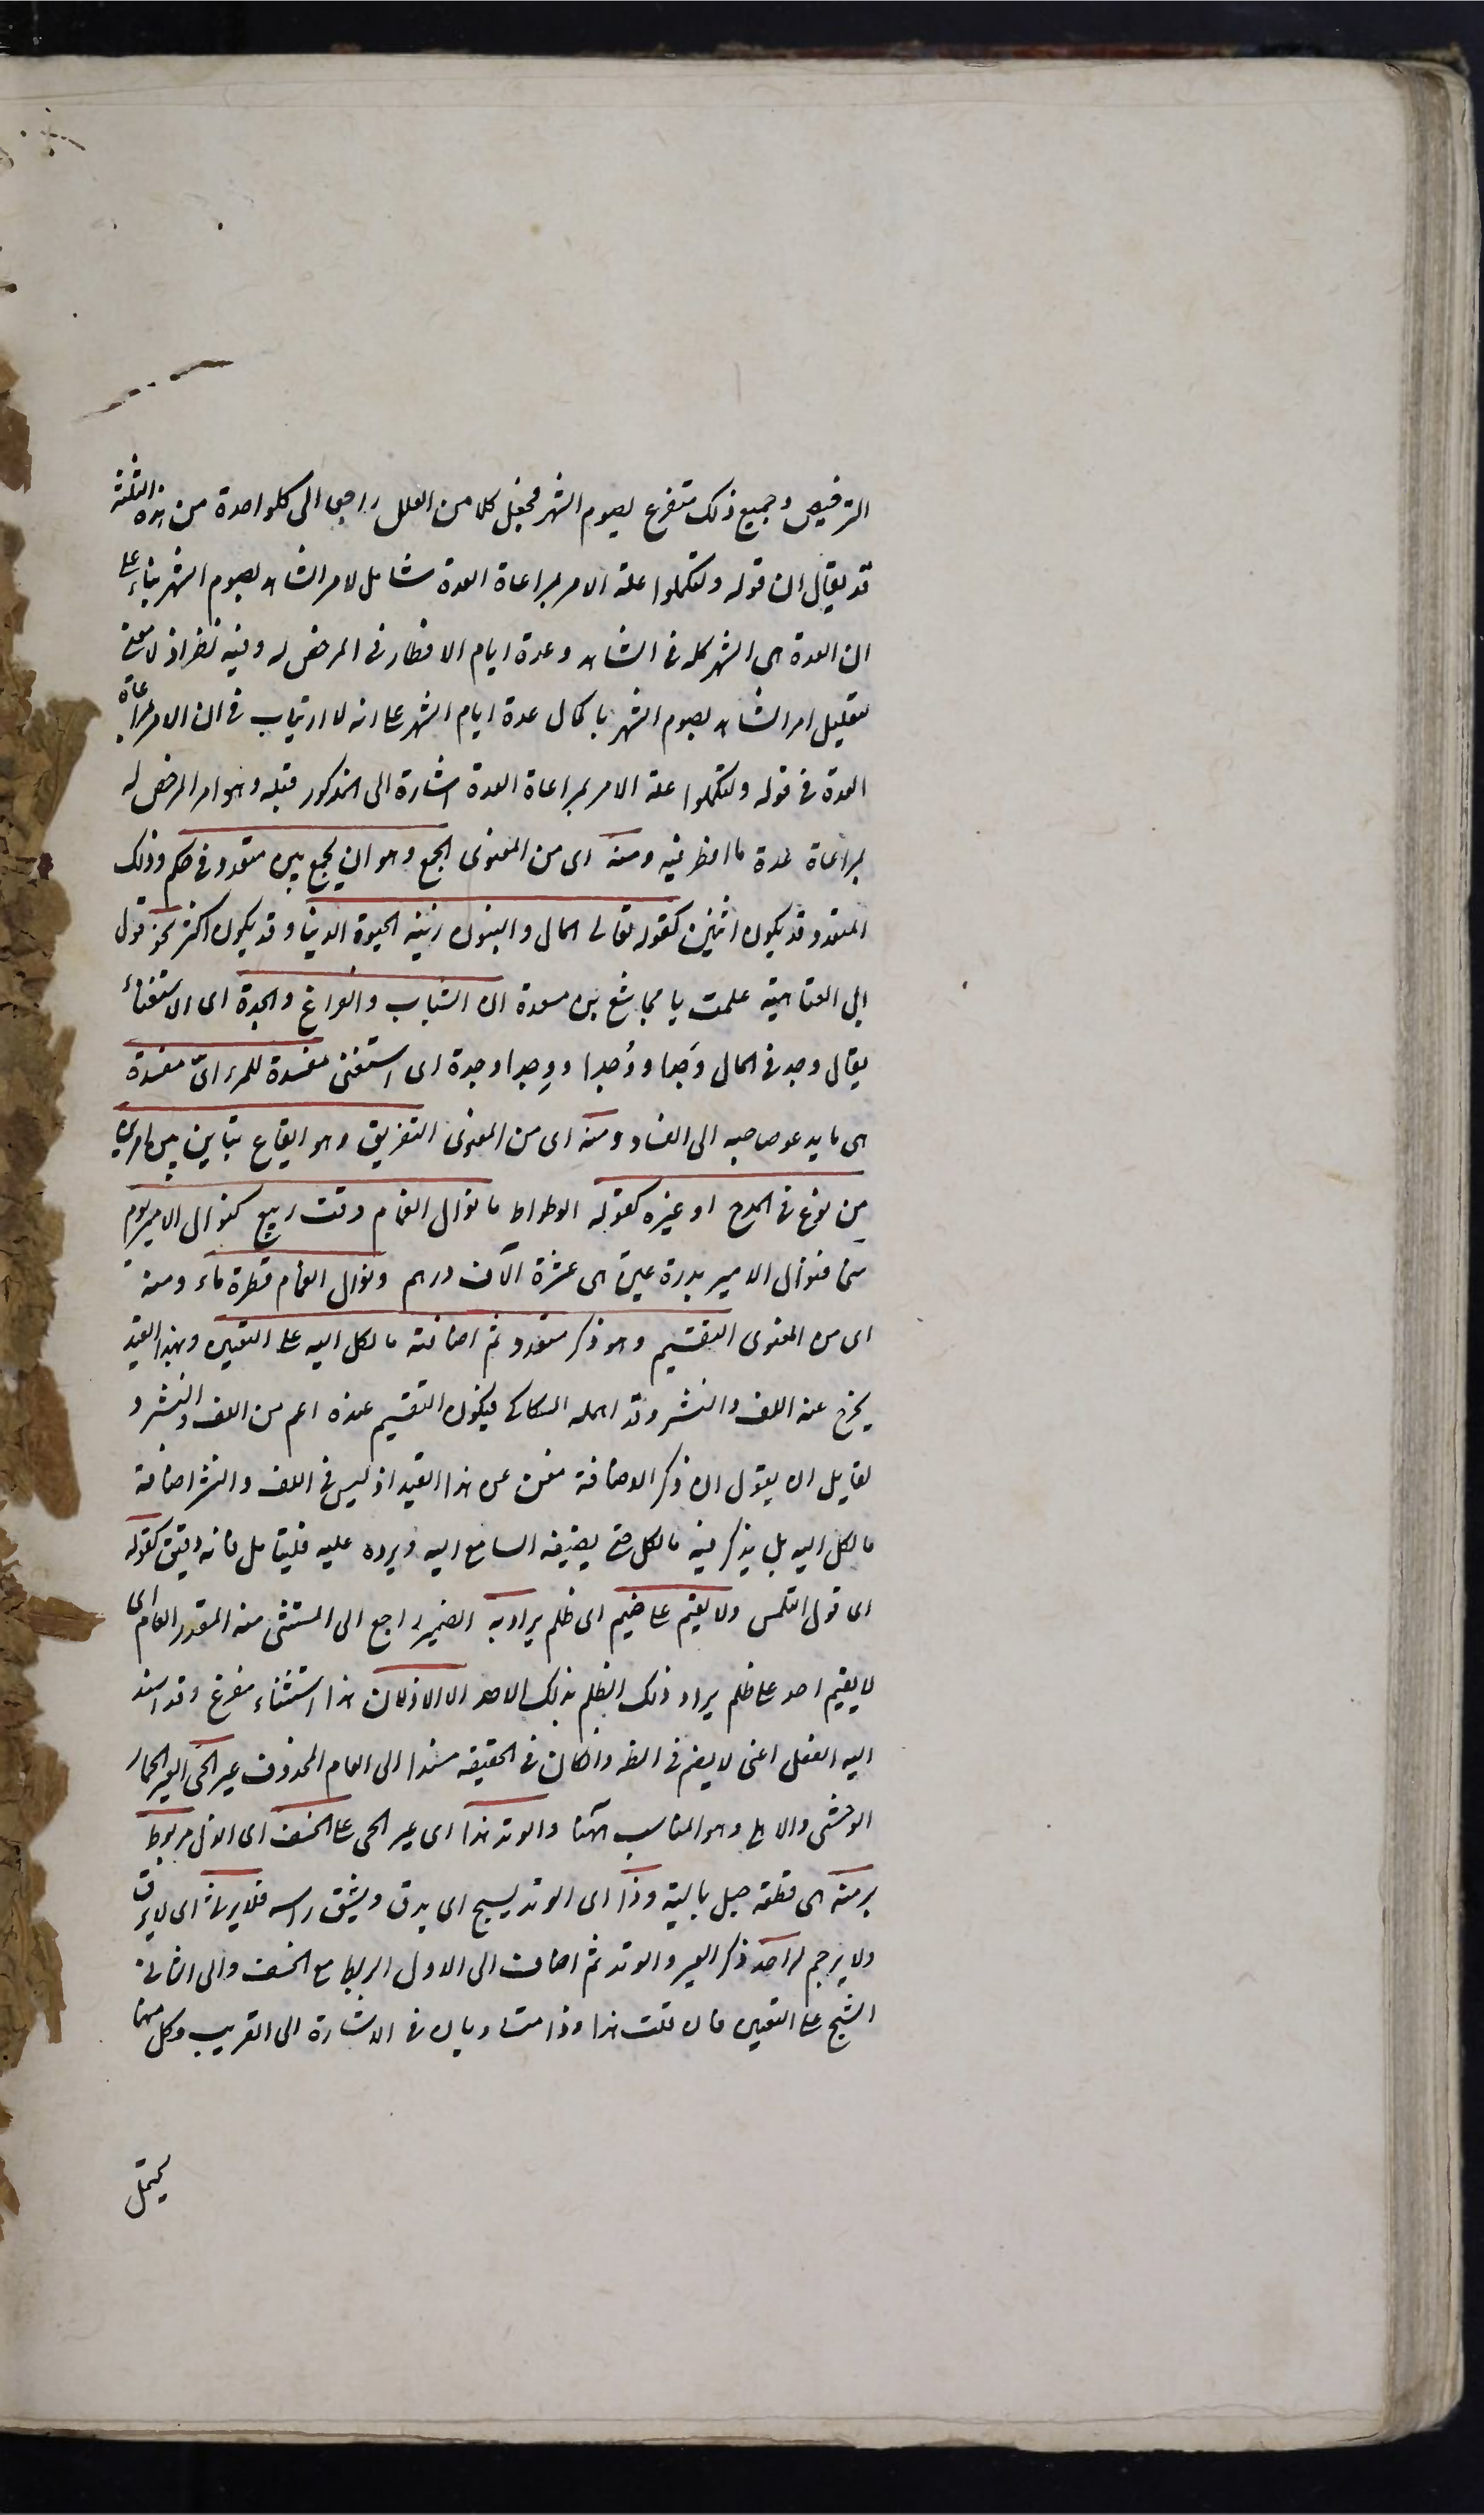 الترخيص وجميع ذلك متفرع لصوم الشهر فجعل كلا من العلل راجعا الى كلواحدة من هذه الثلثة
قد يقال ان قوله ولتكملوا علة الامر بمراعاة العدة شامل لامر الشاهد بصوم الشهر بناء على
ان العدة هى الشهر كله فى الشاهد وعدة ايام الافطار فى المرخص له وفيه نظر اذ لا معنى
لتعليل امر الشاهد بصوم الشهر باكمال عدة ايام الشهر على انه لا ارتياب فى ان الامر بمراعاة
العدة فى قوله ولتكملوا علة الامر بمراعاة العدة اشارة الى المذكور قبله وهو امر المرخص له
بمراعاة عدة ما افطر فيه ومنه اى من المعنوى الجمع وهو ان يجمع بين متعدد فى حكم وذلك
المتعدد قد يكون اثنين كقوله تعالى المال والبنون زينة الحيوة الدنيا وقد يكون اكثر نحو قول
ابى العتاهية علمت يا مجاشع بن مسعدة ان الشباب والفراغ والجدة اى الاستغناء
يقال وجد فى المال وَجدا ووُجدا ووِجدا وجدة اى استغنى مفسدة للمرء اىّ مفسدة
هى ما يدعو صاحبه الى الفساد ومنه اى من المعنوى التفريق وهو ايقاع تباين بين امرين
من نوع فى المدح او غيره كقوله الوطواط ما نوال الغمام وقت ربيع كنوال الامير يوم
سخا فنوال الامير بدرة عين هى عشرة الآف درهم ونوال الغمام قطرة ماء ومنه
اى من المعنوى التقسيم وهو ذكر متعدد ثم اضافة ما لكل اليه على التعيين وبهذا القيد
يخرج عنه اللف والنشر وقد اهمله السكاكى فيكون التقسيم عنده اعم من اللف والنشر و
لقايل ان يقول ان ذكر الاضافة مغن عن هذا القيد اذ ليس فى اللف والنشر اضافة
ما لكل اليه بل يذكر فيه ما لكل حتى يضيفه السامع اليه ويرده عليه فليتامل فانه دقيق كقوله
اى قول المتلمس ولا يقيم على ضيم اى ظلم يراد به الضمير راجع الى المستثنى منه المقدر العام اى
لا يقيم احد على ظلم يراد ذلك الظلم بذلك الاحد الا الاذلان هذا استثناء مفرغ وقد اسند
اليه الفعل اعنى لا يقيم فى الظ وانكان فى الحقيقة مسندا الى العام المحذوف عير الحى العير الحمار
الوحشى والاهلى وهو المناسب ههنا والوتد هذا اى عير الحى على الخسف اى الذل مربوط
برمته هى قطعة حبل بالية وذا اى الوتد يشج اى يدق ويشق راسه فلا يرثى اى لا يرق
ولا يرحم له احد ذكر العير والوتد ثم اضاف الى الاول الربط مع الخسف والى الثانى
الشج على التعيين فان قلت هذا وذا متساويان فى الاشارة الى القريب وكل منهما
يحتمل